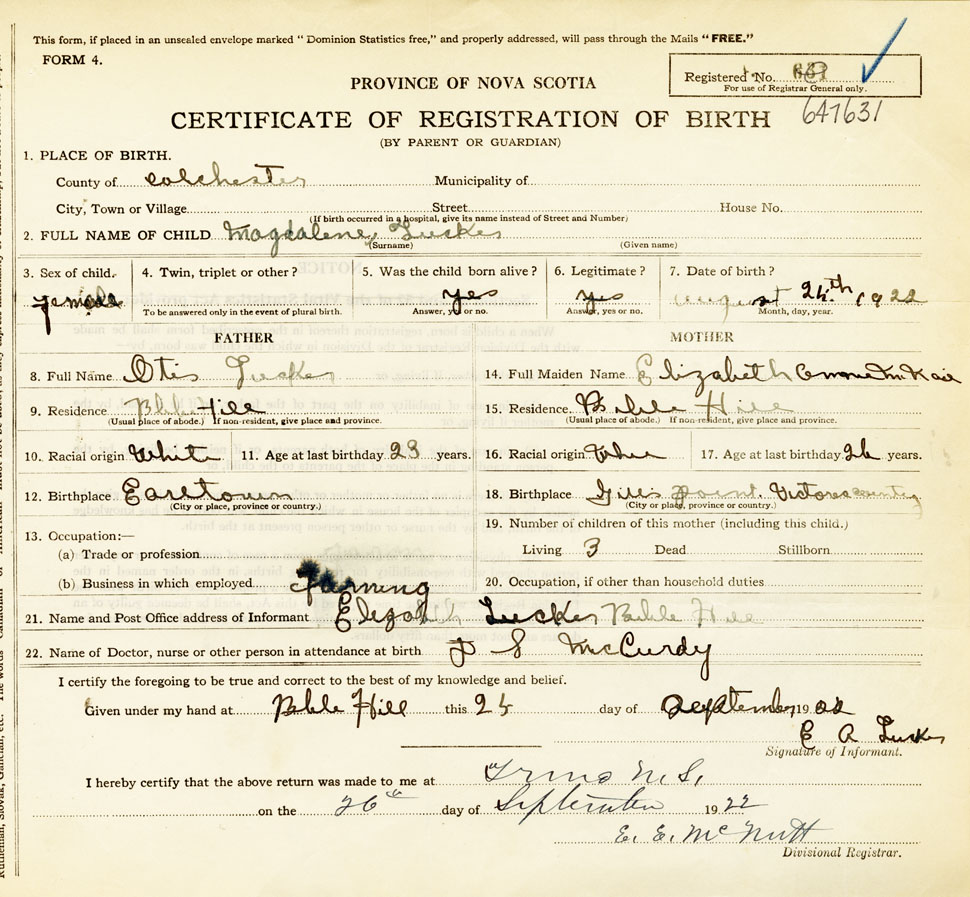 This form, if placed in an unsealed envelope marked "Dominion Statistics free," and properly addressed, will pass through the Mails "FREE."
FORM 4.
Registered No.
For use of Registrar General only.
647631
PROVINCE OF NOVA SCOTIA
CERTIFICATE OF REGISTRATION OF BIRTH
(BY PARENT OR GUARDIAN)
1. PLACE OF BIRTH.
County of Colchester Municipality of
City, Town or Village Street House No.
(If birth occurred in a hospital, give its name instead of Street and Number)
2. FULL NAME OF CHILD Magdalene Tucker
(Surname) (Given name)
3. Sex of child. 4. Twin, triplet or other? 5. Was the child born alive? 6. Legitimate? 7. Date of birth?
Female yes yes August 24th 1922
To be answered only in the event of plural birth. Answer, yes or no. Answer, yes or no. Month, day, year.
FATHER MOTHER
8. Full Name Otis Tucker 14. Full Maiden Name Elizabeth
9. Residence Bible Hill 15. Residence Bible Hill
(Usual place of abode.) If non-resident, give place and province. (Usual place of abode.) If non-resident, give place and province.
10. Racial origin White 11. Age at last birthday 23 years. 16. Racial origin 17. Age at last birthday 26 years.
12. Birthplace Earltown 18. Birthplace Gillis point Victoria county
(City or place, province or country.) (City or place, province or country.)
19. Number of children of this mother (including this child.)
13. Occupation:—
(a) Trade or profession Living 3 Dead Stillborn
(b) Business in which employed Farming 20. Occupation, if other than household duties
21. Name and Post Office address of Informant Elizabeth Tucker Bible Hill
22. Name of Doctor, nurse or other person in attendance at birth S McCurdy
I certify the foregoing to be true and correct to the best of my knowledge and belief.
Given under my hand at Bible Hill this 25 day of September 1922
E A Tucker
Signature of Informant.
I hereby certify that the above return was made to me at Truro N.S.
on the 26th day of September 1922
E. E. McNutt
Divisional Registrar.